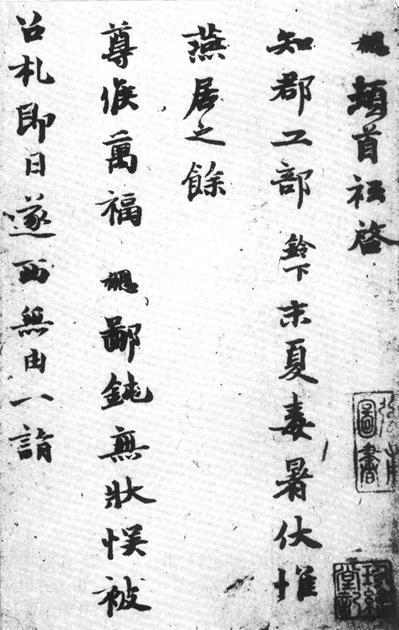 頓首祗啓
知郡工部鈴下末夏毒暑伏惟
燕居之餘
尊候萬福鄙鈍無狀悮被
召札即日遂西無由一詣
圖書